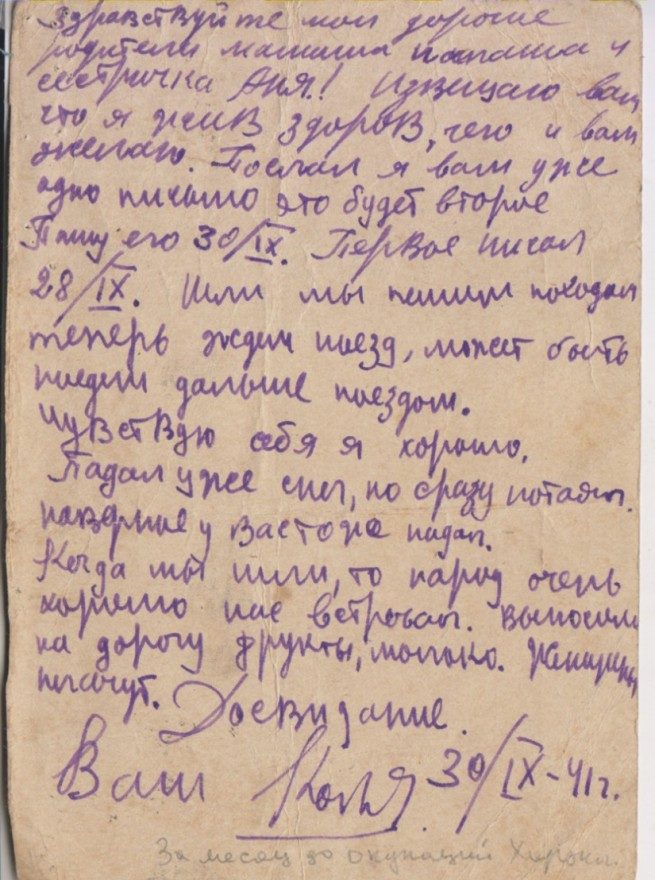 Здравствуйте мои дорогие
родители мамаша папаша и
сестричка Аня! Извещаю вам
что я жив здоров, чего и вам
желаю. Послал я вам уже
одно письмо это будет второе
Пишу его 30/IX. Первое писал
28/IX. Шли мы пешим походом
теперь ждем поезд, может быть
поедем дальше поездом.
Чувствую себя я хорошо.
Падал уже снег, но сразу потаял.
наверное у вас тоже падал.
Когда мы шли, то народ очень
хорошо нас встречал. Выносили
на дорогу фрукты, молоко. Женщины
плачут. Досвидание.
Ваш Коля 30/IX-41г.
За месяц до окупации